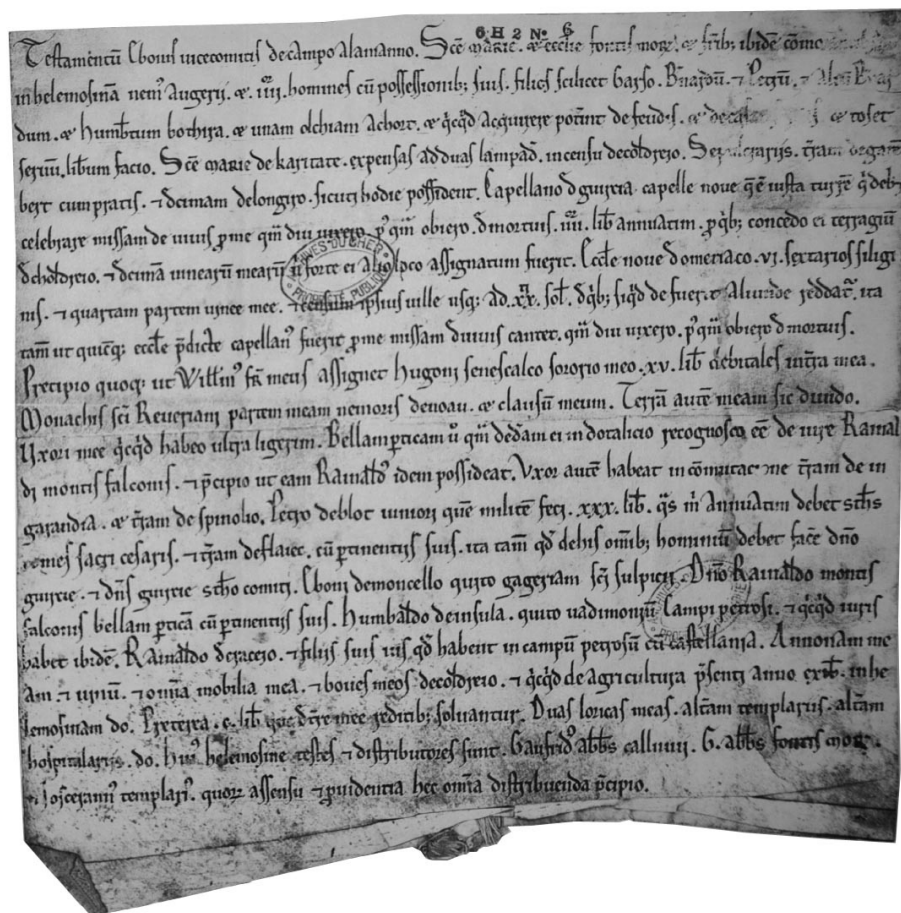 6 H 2 Nº 6
Testamentū Ebonis uicecomitis de campo alamanno. Scē marie. & ecclie fontis mor. & frīb; ibidē cōmo
in helemosina nem Augerii. & .IIII. homines cū possessionib; suis. filios scilicet Garso. Bnardū. ⁊ Petrū. ⁊
dum. & Humbtum bothira. & unam olchiam Achort. & qcqd acquirere potint de feudis. & toset
seruū. libum facio. Scē marie de karitate. expensas ad duas lampad. in censu de coldreio. tram
bert cum pratis. ⁊ decimam de longiro. sicuti hodie possident. Capellano d guircia capelle noue qē iuxta turrē q deb;
celebrare missam de uiuis pro me qm diu uixero. p qm obiero d mortuis. IIII. lib annuatim. p qb; concedo ei terragiū
d choldreio. ⁊ decimā uinearū mearū n forte ei alio loco assignatum fuerit. Eccle noue d omeriaco. VI. sextarios siligi
nis. ⁊ quartam partem uinee mee. ⁊ censum ipsius uille usq; ad .XX. sol. d qb; siqd de fuerit aliunde reddat. ita
tam ut quicq; eccle pdicte capellan fuerit pro me missam d uiuis cantet. qm diu uixero. p qm obiero d mortuis.
Precipio quoq; ut Willm fr meus assignet Hugoni senescalco sororio meo. XV. lib debitales in tra mea.
Monachis sci Reueriani partem meam nemoris denoau. & clausū meum. Terrā autē meam sic diuido.
Uxori mee qcqd habeo ultra ligerim. Bellam pticam u qm dedam ei in dotalicio recognosco eē de iure Rainal
di montis falconis. ⁊ pcipio ut eam Rainald idem possideat. Uxor autē habeat in cōmutac ne tram de in
garandia. & tram de spinolio. Petro de blot iuniori quē militē feci. XXX. lib. qs m annuatim debet stħs
comes sacri cesaris. ⁊ tram de flaiec. cū ptinentiis suis. ita tam qd de his omīb; hominiū debet facē dno
guircie. ⁊ dns guircie stho comiti. Eboni de moncello quito gageriam sci sulpicii. Dno Rainaldo montis
falconis bellam pticā cū ptinentiis suis. Humbaldo de insula. quito uadimoniū Campi petrosi. ⁊ qcqd iuris
habet ibidē. Rainaldo ⁊ filiis suis ius qd habent in campū petrosū cū castellania. Annonam me
am ⁊ uinū. ⁊ omia mobilia mea. ⁊ boues meos de coldreio. ⁊ qcqd de agricultura psenti anno exib. in he
lemosinam do. Preterea .C. lib que de tre mee reditib; soluantur. Duas loricas meas. altam templariis. altam
hospitalariis. do. Hui helemosine testes ⁊ distributores sunt. Gaufrid abbs calluuii. G. abbs fontis mor.
⁊ Joscerann templari. quor assensu ⁊ puidentia hec omia distribuenda pcipio.
PROPRIÉTÉ PUBLIQUE